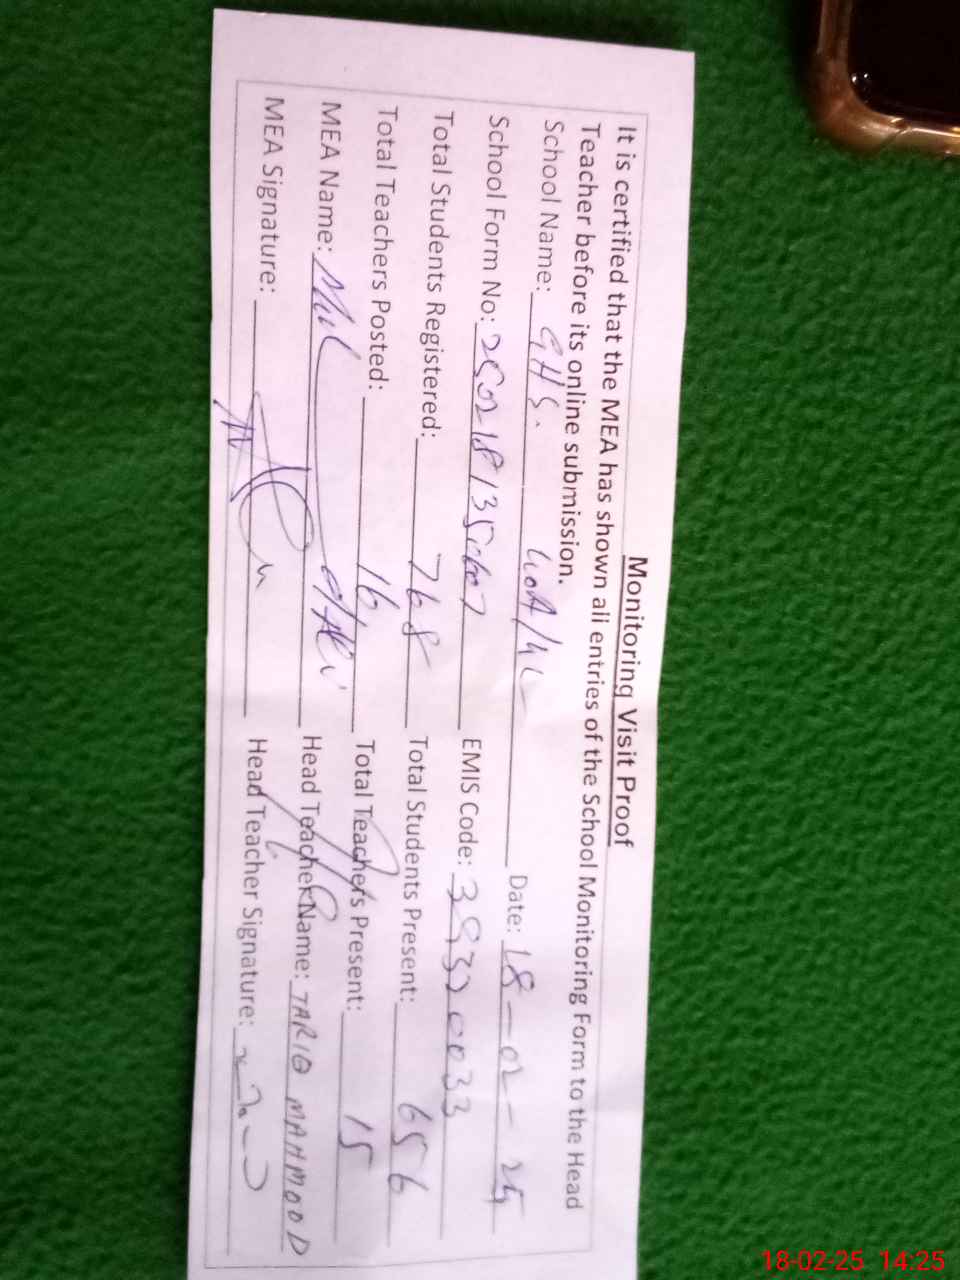 Monitoring Visit Proof
It is certified that the MEA has shown all entries of the School Monitoring Form to the Head
Teacher before its online submission.
School Name: GHS. Date: 18-02-25
School Form No: EMIS Code:
Total Students Registered: 768 Total Students Present: 656
Total Teachers Posted: 16 Total Teachers Present: 15
MEA Name: Head Teacher Name: TARIQ MAHMOOD
MEA Signature: Head Teacher Signature:
18-02-25 14:25